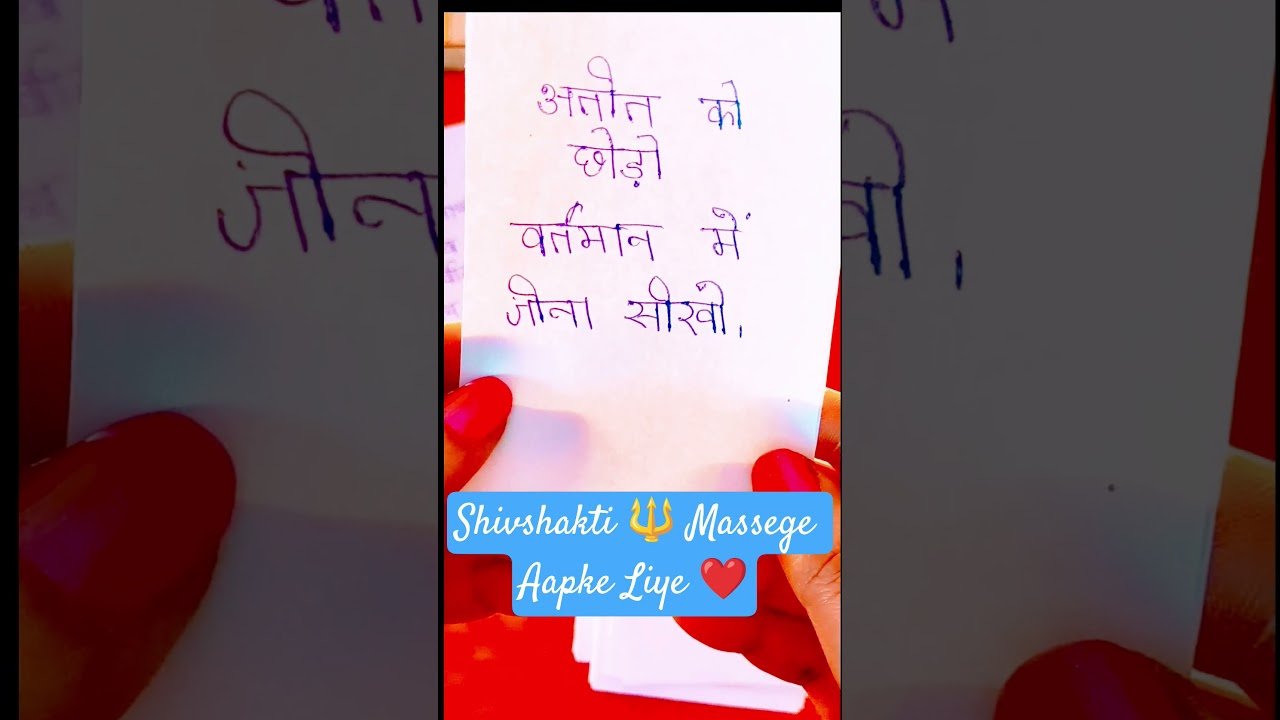 अतीत को
छोड़ो
वर्तमान में
जीना सीखो.
Shivshakti 🔱 Massege
Aapke Liye ❤️